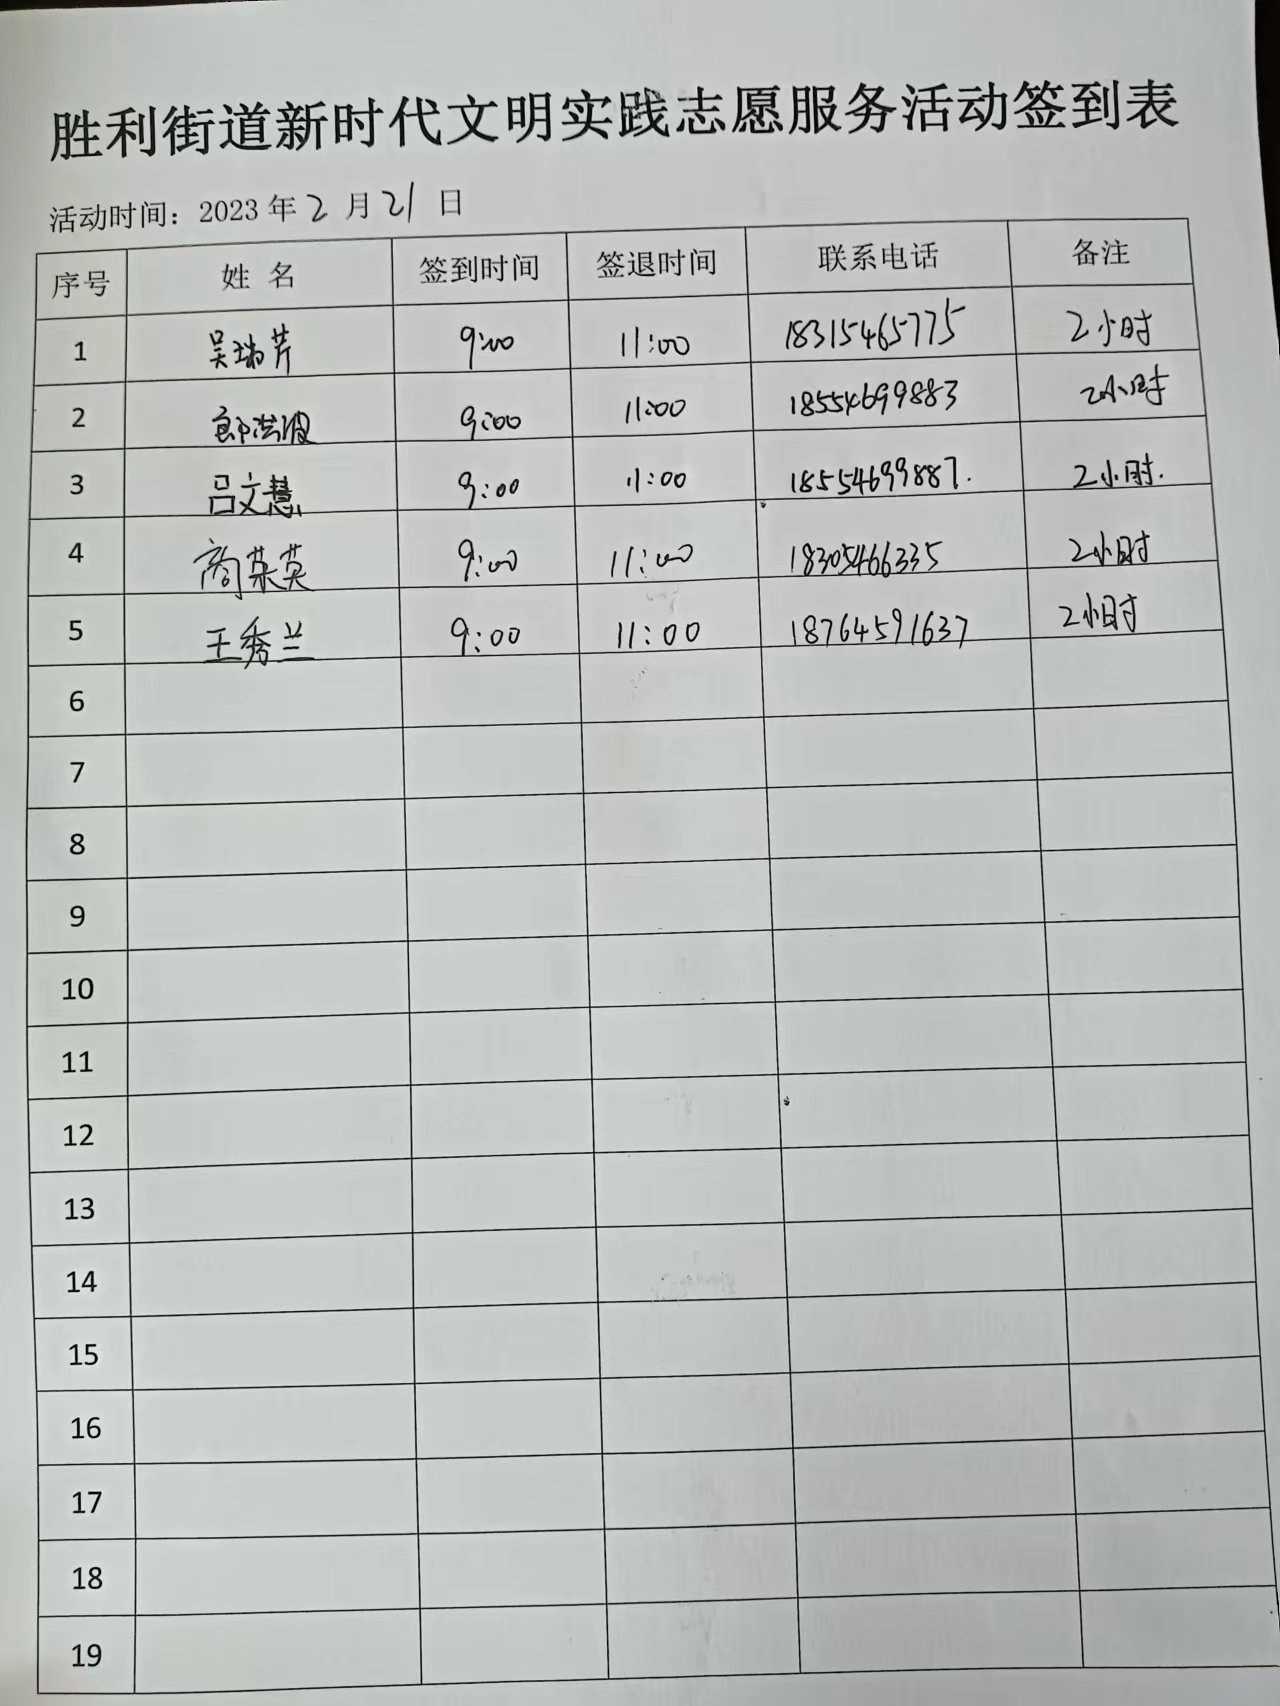 胜利街道新时代文明实践志愿服务活动签到表
活动时间：2023年2月21日
序号 姓名 签到时间 签退时间 联系电话 备注
1 吴瑞芹 9:00 11:00 18315465775 2小时
2 郭洪波 9:00 11:00 18554699883 2小时
3 吕文慧 9:00 11:00 18554699887. 2小时.
4 商荣英 9:00 11:00 18305466335 2小时
5 王秀兰 9:00 11:00 18764591637 2小时
6
7
8
9
10
11
12
13
14
15
16
17
18
19